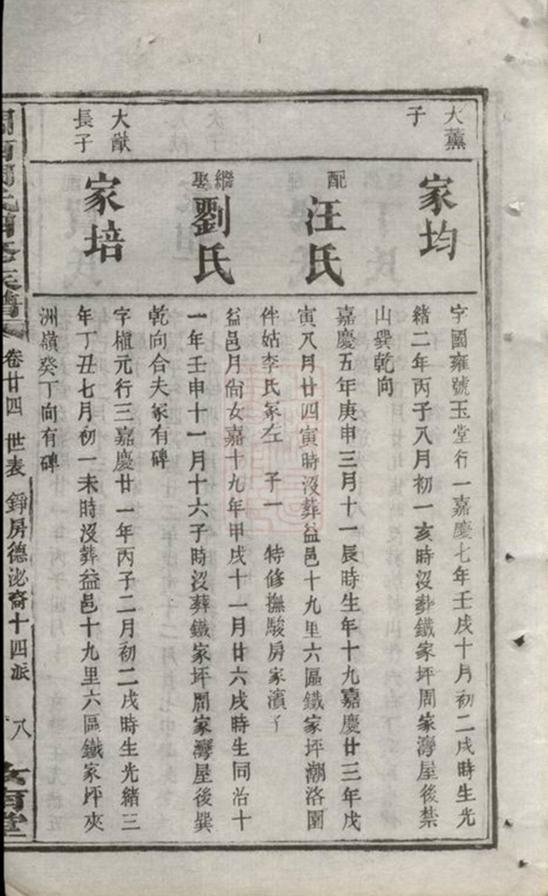 大薰
子
家均
字國雍號玉堂行一嘉慶七年壬戌十月初二戌時生光
緒二年丙子八月初一亥時沒葬鐵家坪周家灣屋後禁
山巽乾向
配
汪氏
嘉慶五年庚申三月十一辰時生年十九嘉慶廿三年戊
寅八月廿四寅時沒葬益邑十九里六區鐵家坪潮洛園
伴姑李氏冢左 子一 特修撫駿房家濱子
繼娶
劉氏
益邑月尙女嘉十九年甲戌十一月廿六戌時生同治十
一年壬申十一月十六子時沒葬鐵家坪周家灣屋後巽
乾向合夫冢有碑
大猷
長子
家培
字植元行三嘉慶廿一年丙子二月初二戌時生光緒三
年丁丑七月初一未時沒葬益邑十九里六區鐵家坪夾
洲嶺癸丁向有碑
卷廿四 世表 錚房德泌裔十四派
八